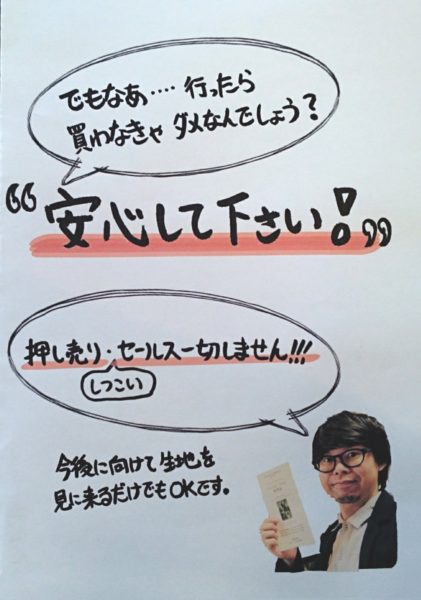 でもなあ‥‥ 行ったら
買わなきゃ ダメなんでしょう?
“安心して下さい!„
押し売り・セールス一切しません!!!
しつこい
今後に向けて生地を
見に来るだけでもOKです。